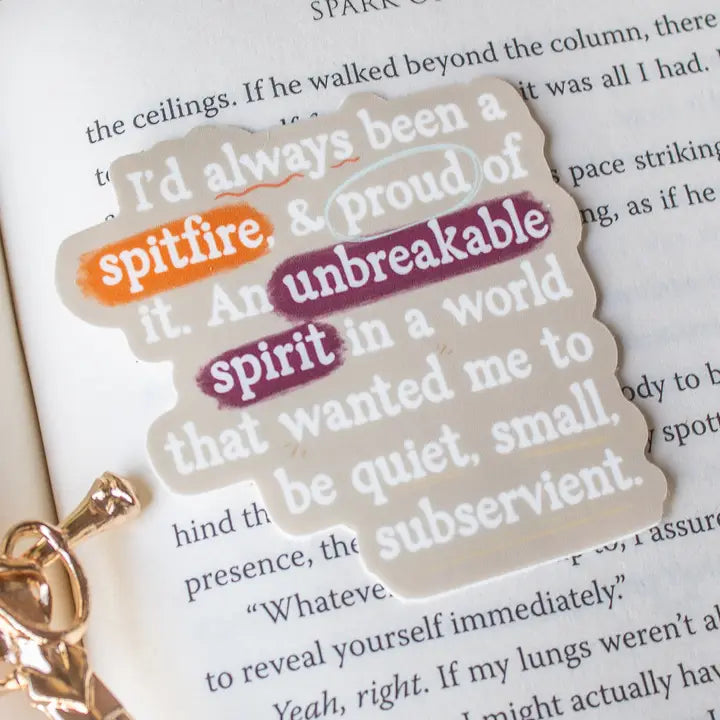 SPARK
the ceilings. If he walked beyond the column, there
it was all I had.
I'd always been a
spitfire, & proud of
it. An unbreakable
spirit in a world
that wanted me to
be quiet, small,
subservient.
pace striking
ng, as if he
ody to b
spott
hind th
presence, the
to, I assure
"Whateve
to reveal yourself immediately."
Yeah, right. If my lungs weren't al
I might actually hav